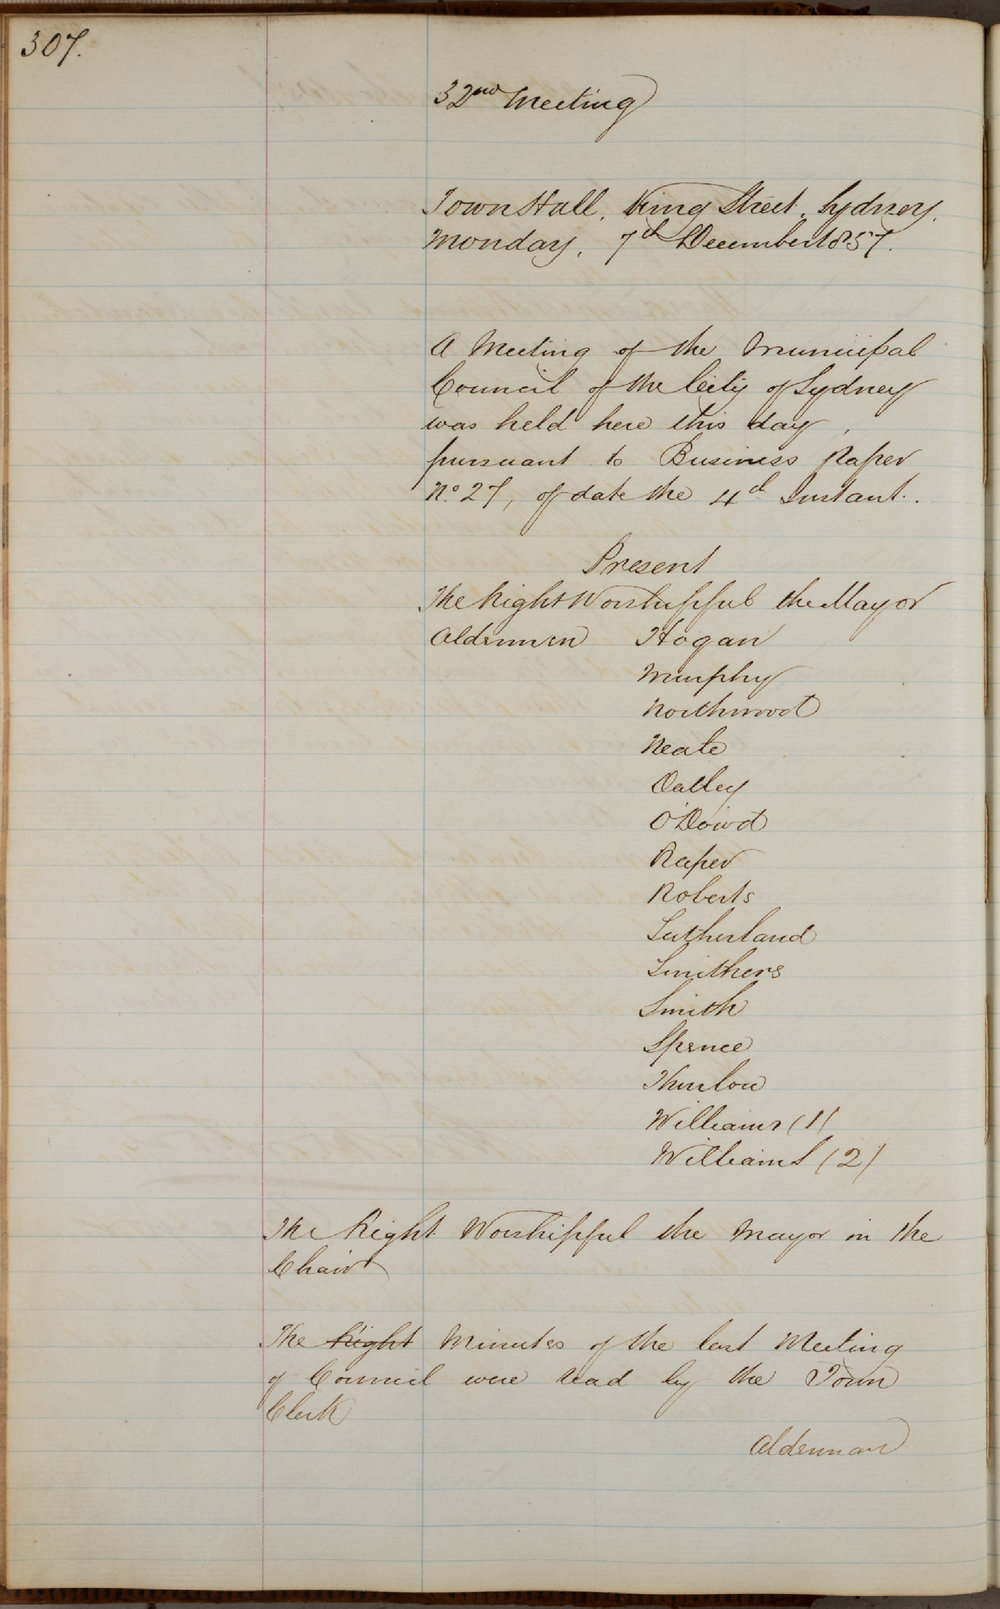 307.
32nd Meeting
Town Hall, King Street, Sydney,
Monday, 7th December 1857.
A Meeting of the Municipal
Council of the City of Sydney
was held here this day,
pursuant to Business Paper
No 27, of date the 4th Instant.
Present
The Right Worshipful the Mayor
Aldermen Hogan
Murphy
Northwood
Neale
Oatley
O'Dowd
Raper
Roberts
Sutherland
Smithers
Smith
Spence
Thurlow
Williams (1)
Williams (2)
The Right Worshipful the Mayor in the
Chair
The Right Minutes of the last Meeting
of Council were read by the Town
Clerk
Alderman